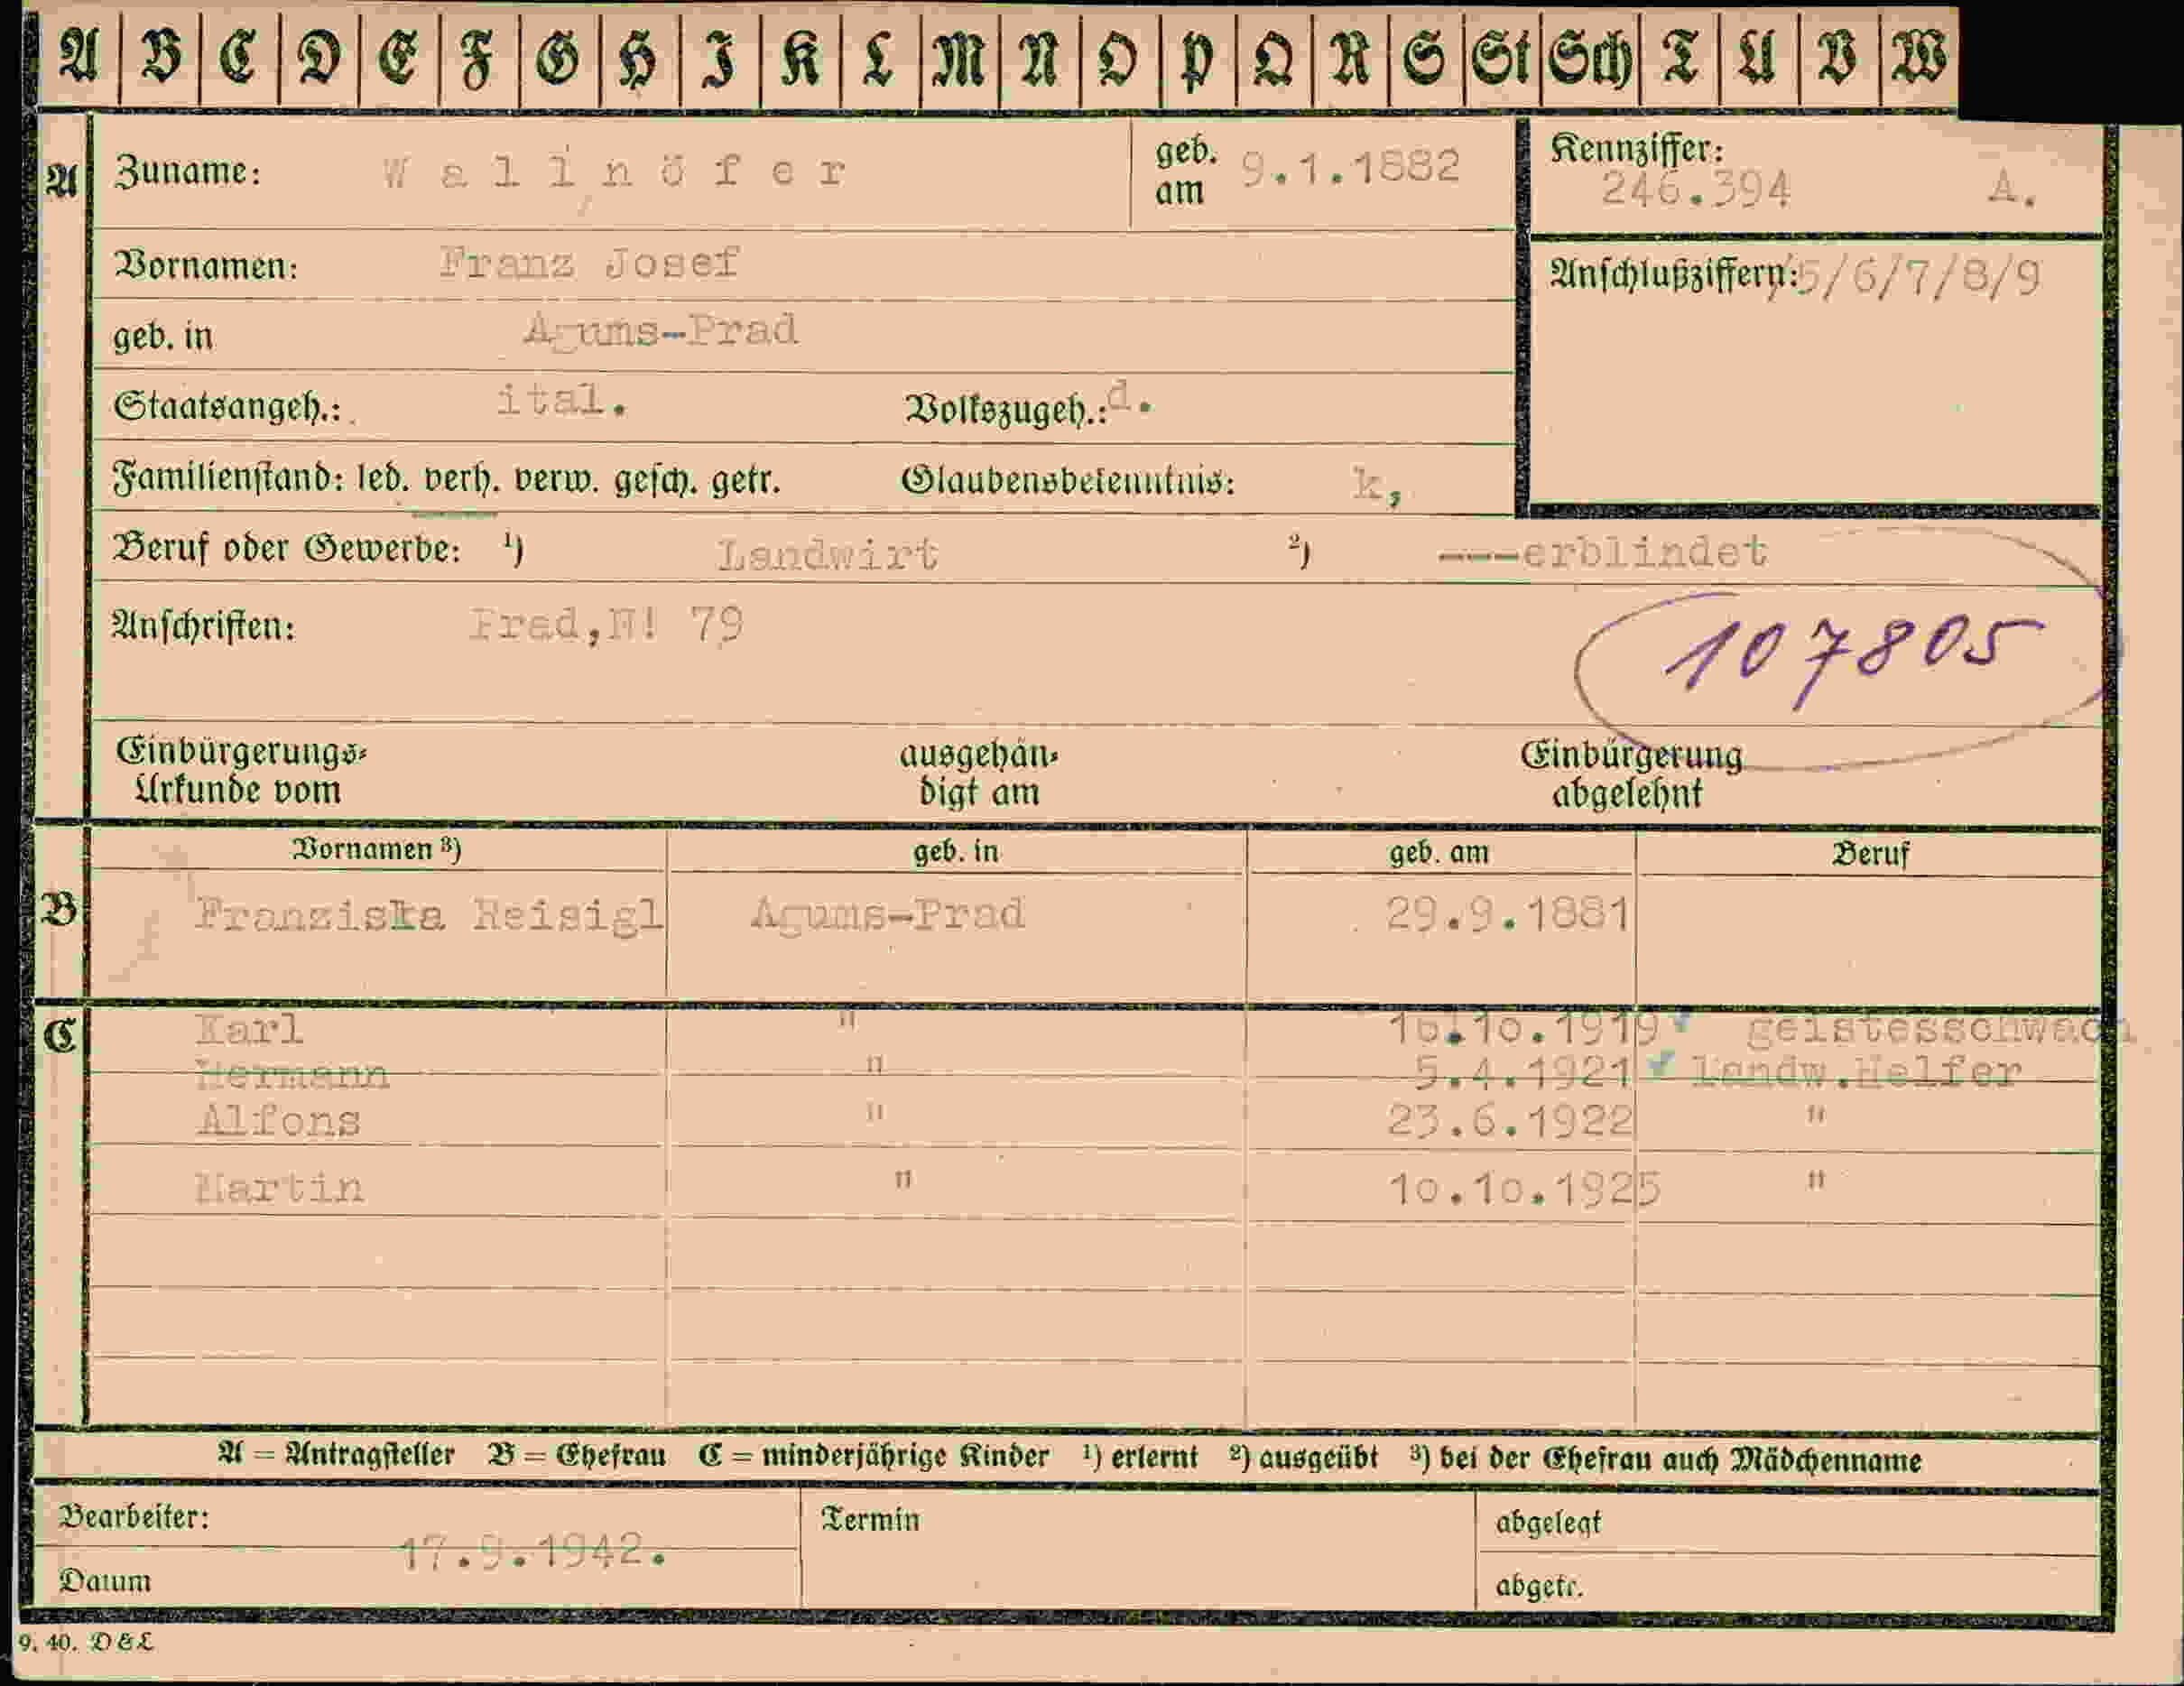 A B C D E F G H I K L M N O P Q R S St Sch T U V W
A Zuname: Wallnöfer geb. am 9.1.1882 Kennziffer: 246.394 A.
Vornamen: Franz Josef Anschlußziffern: 5/6/7/8/9
geb. in Agums-Prad
Staatsangeh.: ital. Volkszugeh.: d.
Familienstand: led. verh. verw. gesch. getr. Glaubensbekenntnis: k,
Beruf oder Gewerbe: ¹) Landwirt ²) ---erblindet
Anschriften: Prad,N! 79
107805
Einbürgerungs- ausgehän- Einbürgerung
Urkunde vom digt am abgelehnt
Vornamen ³) geb. in geb. am Beruf
B Franziska Reisigl Agums-Prad 29.9.1881
C Karl " 10.1919 geistesschwach
Hermann " 5.4.1921 Landw.Helfer
Alfons " 23.6.1922 "
Martin " 10.10.1925 "
A = Antragsteller B = Ehefrau C = minderjährige Kinder ¹) erlernt ²) ausgeübt ³) bei der Ehefrau auch Mädchenname
Bearbeiter: Termin abgelegt
17.9.1942.
Datum abgetr.
9. 40. D & L